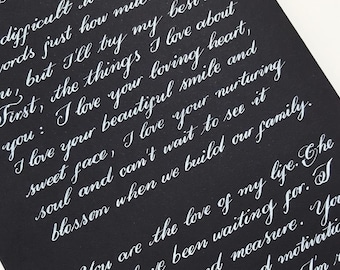 difficult
words just how much
u, but I'll try my best
First, the things I love about
you: I love your loving heart,
I love your beautiful smile and
sweet face, I love your nurturing
soul and can't wait to see it
blossom when we build our family.
You are the love of my life. The
have been waiting for. I
measure. You
motivation